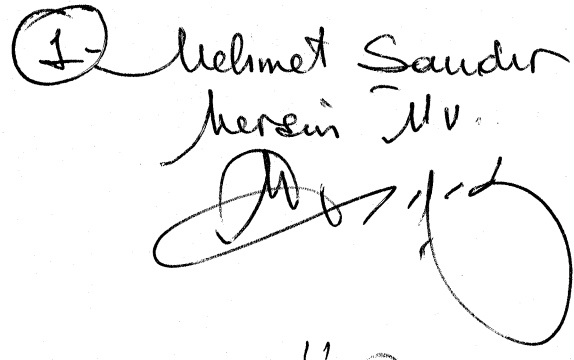 1- Mehmet Şandır
Mersin Mv.